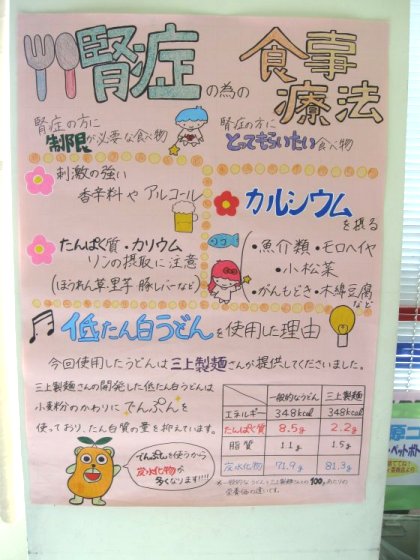 腎症の為の
食事
療法
腎症の方に
制限が必要な食べ物
腎症の方に
とってもらいたい食べ物
刺激の強い
香辛料やアルコール
カルシウム
を摂る
たんぱく質・カリウム
リンの摂取に注意
(ほうれん草.里芋 豚レバーなど)
・魚介類・モロヘイヤ
・小松菜
・がんもどき・木綿豆腐
など
低たん白うどんを使用した理由
今回使用したうどんは三上製麺さんが提供してくださいました。
三上製麺さんの開発した低たん白うどんは
小麦粉のかわりにでんぷんを
使っており、たん白質の量を抑えています。
一般的なうどん 三上製麺
エネルギー 348kcal 348kcal
たんぱく質 8.5g 2.2g
脂質 1.1g 1.5g
炭水化物 71.9g 81.3g
でんぷんを使うから
炭水化物が
多くなります!!!!
*一般的なうどんと三上製麺さんの100gあたりの
栄養価の違いです。